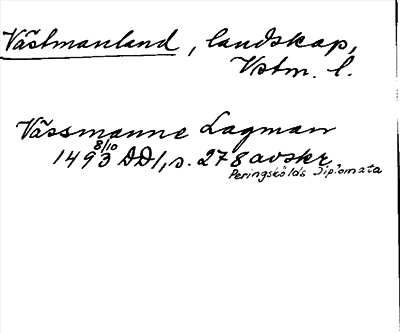 Västmanland, landskap,
Vstm. l.
Vässmanne Lagman
1493 8/10 DD1, s. 278 avskr.
Peringskölds Diplomata